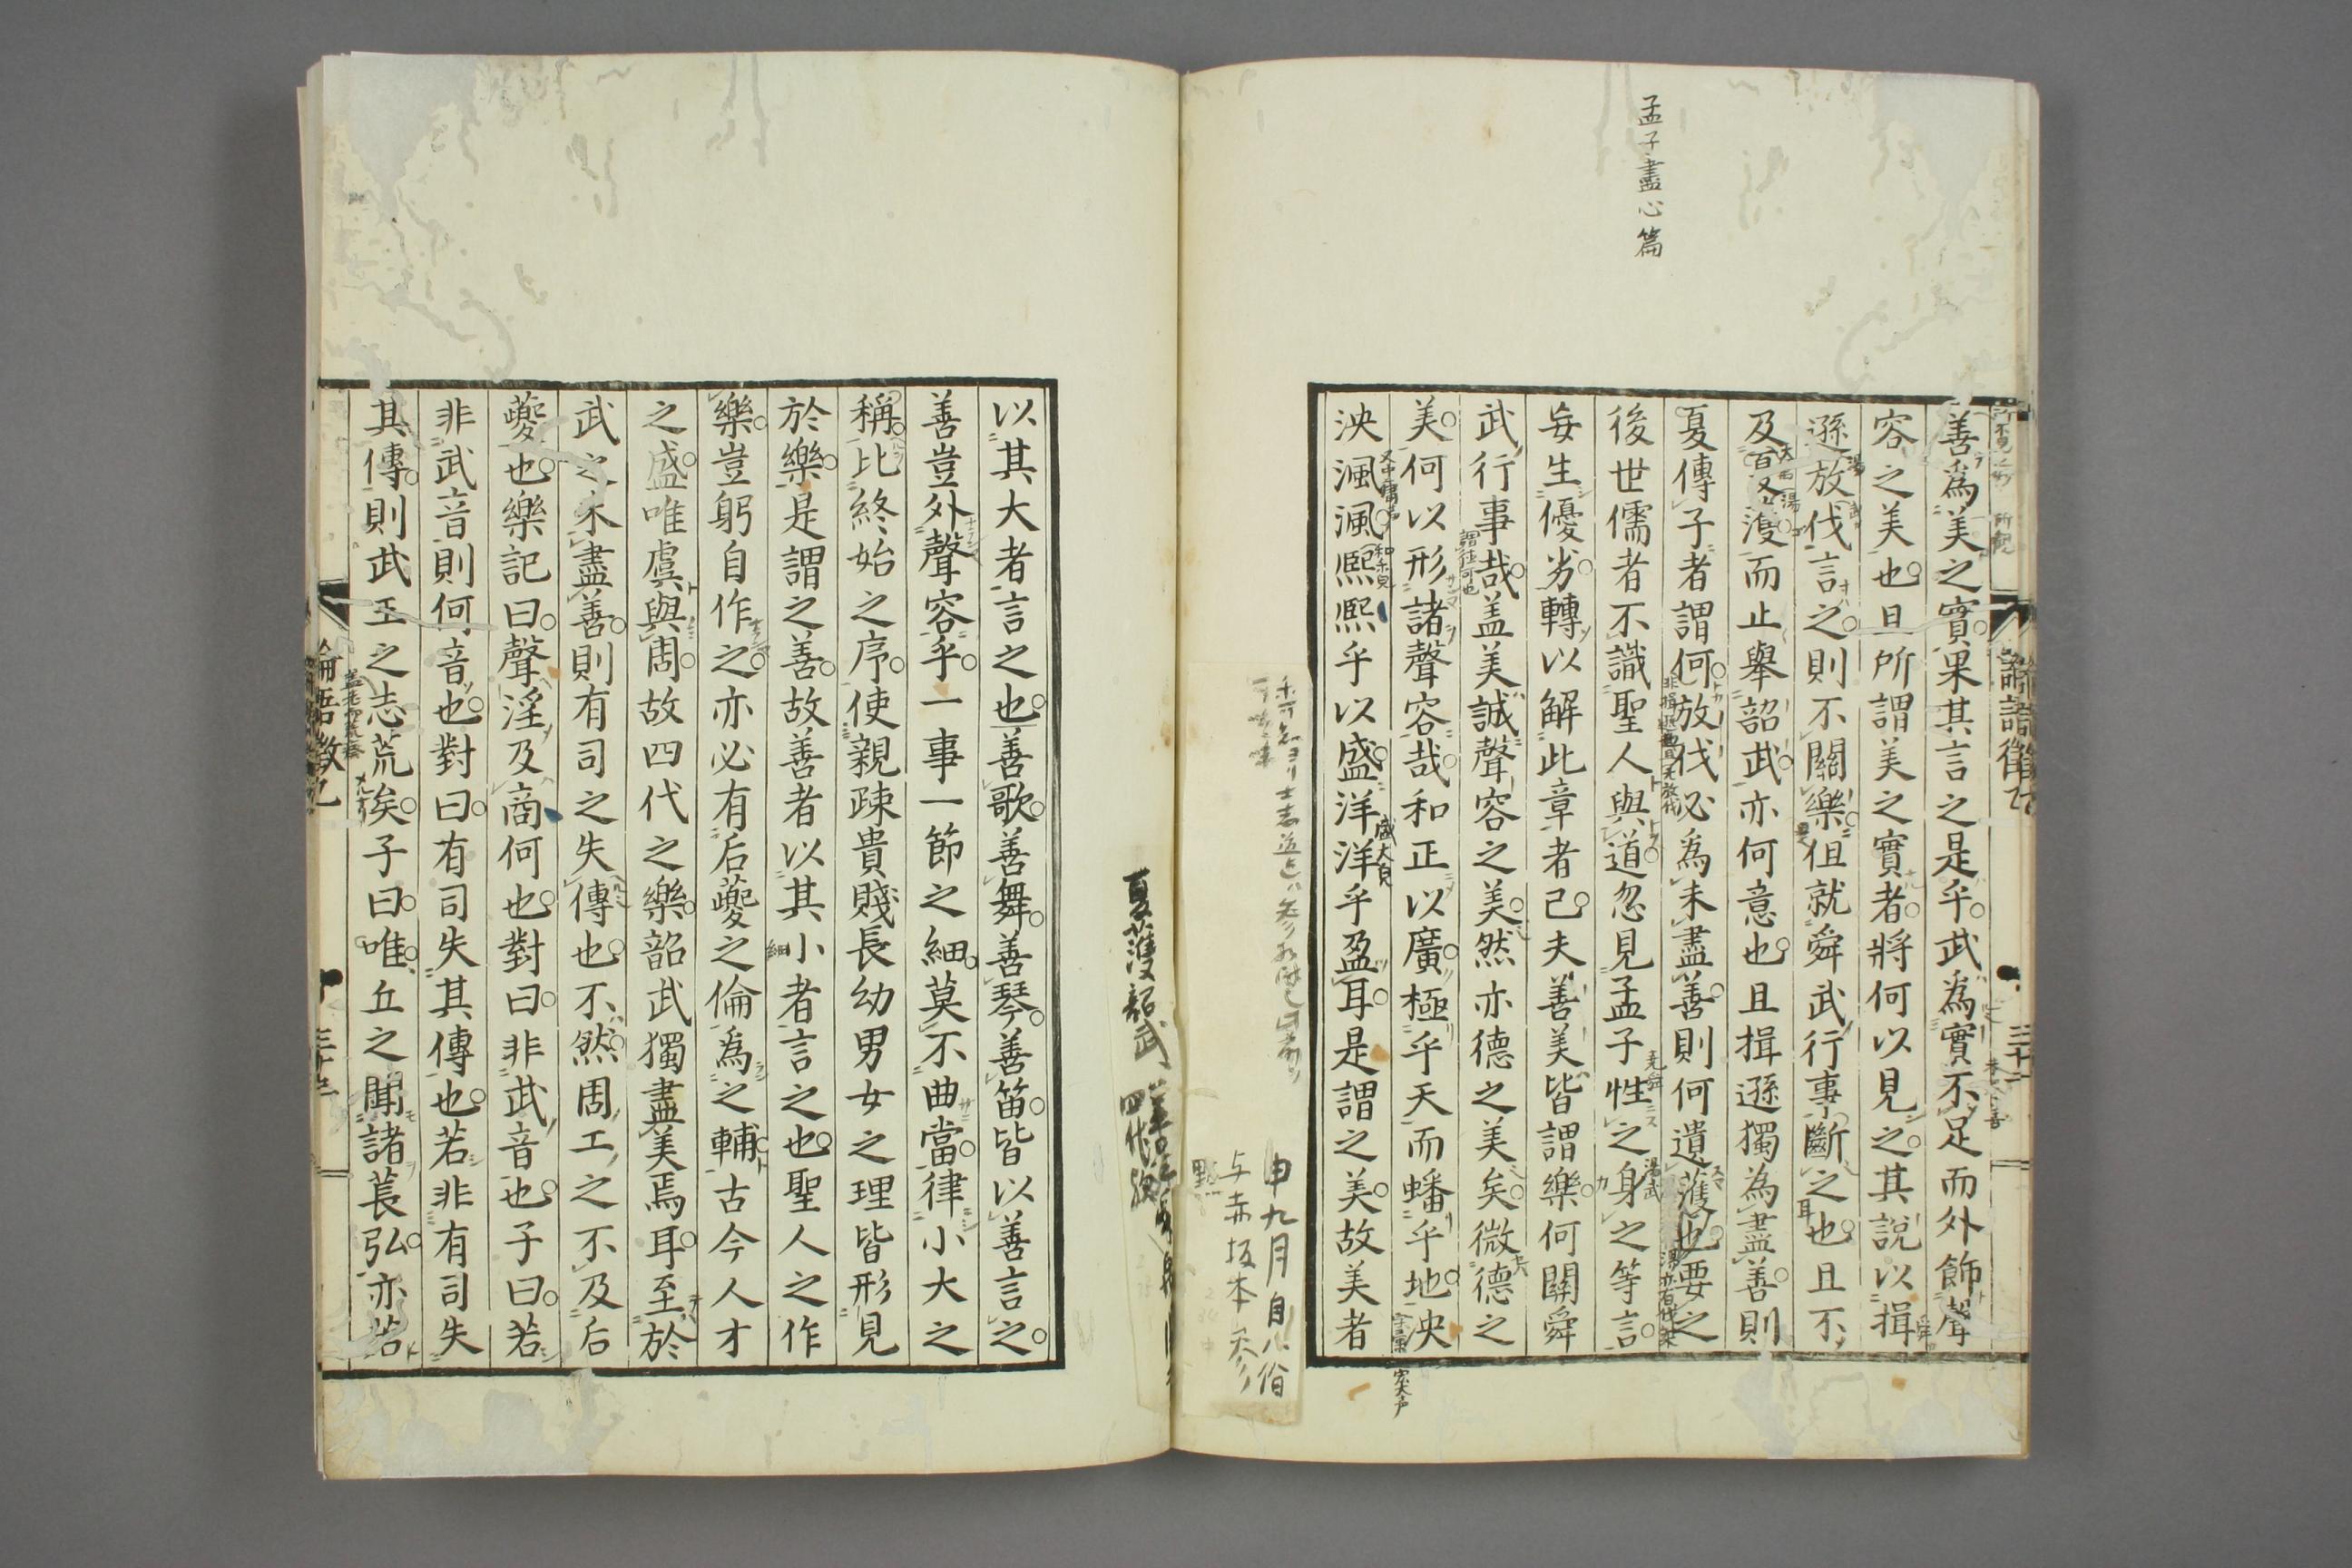 孟子盡心篇
善爲美之實果其言之是乎武爲實不足而外飾聲
容之美也且所謂美之實者將何以見之其說以揖
遜放伐言之則不關樂但就舜武行事斷之也且不
及夏及濩而止舉韶武亦何意也且揖遜獨爲盡善則
夏傳子者謂何放伐必爲未盡善則何遺濩也要之
後世儒者不識聖人與道忽見孟子性之身之等言
妄生優劣轉以解此章者已夫善美皆謂樂何關舜
武行事哉盖美誠聲容之美然亦德之美矣微德之
美何以形諸聲容哉和正以廣極乎天而蟠乎地泱
泱渢渢熙熙乎以盛洋洋乎盈耳是謂之美故美者
論語徵乙
三十二
申九月
与赤坂本參
夏濩韶武
四代
以其大者言之也善歌善舞善琴善笛皆以善言之
善豈外聲容乎一事一節之細莫不曲當律小大之
稱比終始之序使親疎貴賤長幼男女之理皆形見
於樂是謂之善故善者以其小者言之也聖人之作
樂豈躬自作之亦必有后夔之倫爲之輔古今人才
之盛唯虞與周故四代之樂韶武獨盡美焉耳至於
武之未盡善則有司之失傳也不然周工之不及后
夔也樂記曰聲淫及商何也對曰非武音也子曰若
非武音則何音也對曰有司失其傳也若非有司失
其傳則武王之志荒矣子曰唯丘之聞諸萇弘亦若